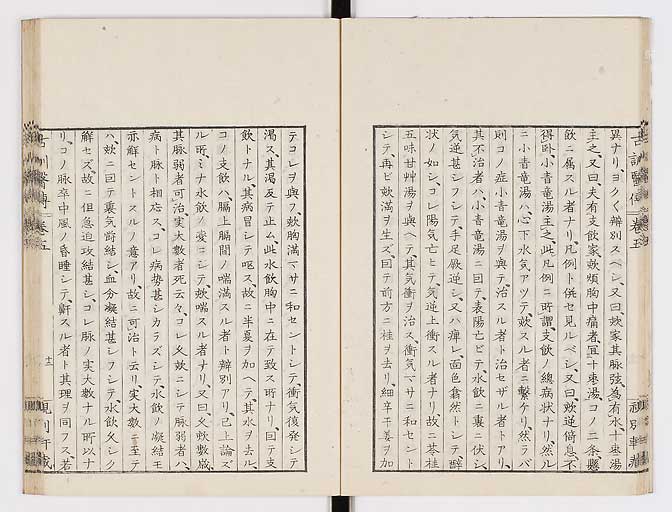 異ナリ、ヨクく辨別スベシ、又曰欬家其脉弦為有水、十棗湯
主之、又曰夫有支飲家欬煩胸中痛者、宜十棗湯、コノ二条懸
飲ニ属スル者ナリ、凡例ト併セ見ルベシ、又曰欬逆倚息、不
得臥、小青竜湯主之、此凡例ニ所謂支飲ノ總病状ナリ、然ル
ニ小青竜湯ハ、心下水気アツテ、欬スル者ニ繫ケリ、然ラバ
則コノ症小青竜湯ヲ與テ治スル者ト治セザル者トアリ、
其不治者ハ、小青竜湯ニ因テ表陽亡ビテ水飲ニ裏ニ伏シ、
気逆甚シフシテ、手足厥逆シ、又ハ痺レ、面色翕然トシテ、酔
状ノ如シ、コレ陽気亡ヒテ、気逆上衝スル者ナリ、故ニ苓桂
五味甘艸湯ヲ與ヘテ、其気衝ヲ治ス、衝気マサニ和セント
シテ、再ビ欬満ヲ生ズ、因テ前方ニ桂ヲ去リ、細辛干姜ヲ加
テコレヲ與フ、欬胸満マサニ和セントシテ、衝気復発シテ
渇ス、其渇反テ止ム、此水飲胸中ニ在テ致ス所ナリ、因テ支
飲トナル、其病冒シテ嘔ス、故ニ半夏ヲ加ヘテ、其水ヲ去ル、
コノ支飲ハ、膈上膈間ノ喘満スル者ト辨別アリ、已上論ズ
ル所ミナ水飲ノ変ニシテ、欬喘スル者ナリ、又曰久欬數歳、
其脉弱者可治、実大數者死云々、コレ久欬ニシテ脉弱者ハ、
病ト脉ト相応ス、コレ病勢甚シカラズシテ水飲ノ凝結モ
亦解セントスルノ意アリ、故ニ可治ト云リ、実大數ニ至テ
ハ、欬ニ因テ裏気欝結シ、血分凝結甚シフシテ、水飲久シク
解セズ、故ニ但急迫攻結甚シ、コレ脉ノ実大數ナル所以ナ
リ、コノ脉卒中風ノ昏睡シテ、鼾スル者ト其理ヲ同フス、若
古訓醫傳 巻五
十三